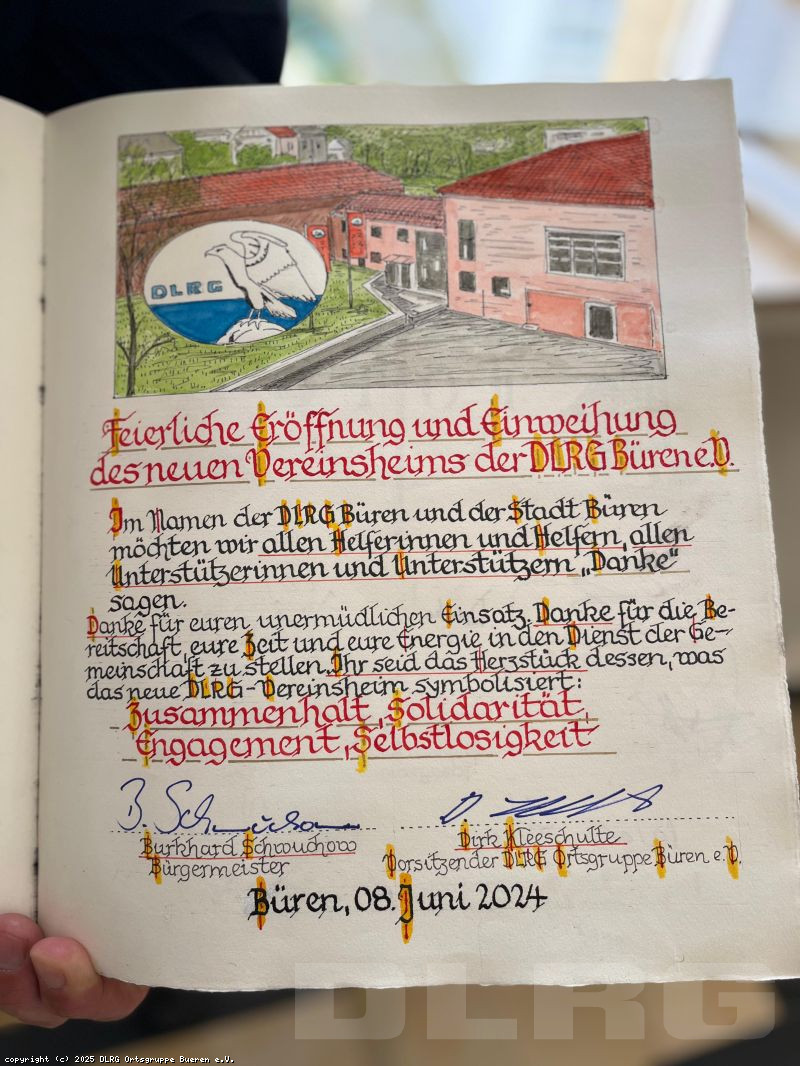 DLRG
Feierliche Eröffnung und Einweihung
des neuen Vereinsheims der DLRG Büren e.V.
Im Namen der DLRG Büren und der Stadt Büren
möchten wir allen Helferinnen und Helfern, allen
Unterstützerinnen und Unterstützern „Danke“
sagen.
Danke für euren unermüdlichen Einsatz. Danke für die Be-
reitschaft, eure Zeit und eure Energie in den Dienst der Ge-
meinschaft zu stellen. Ihr seid das Herzstück dessen, was
das neue DLRG-Vereinsheim symbolisiert:
Zusammenhalt, Solidarität,
Engagement, Selbstlosigkeit
Burkhard Schwuchow
Bürgermeister
Dirk Kleeschulte
Vorsitzender DLRG Ortsgruppe Büren e.V.
Büren, 08. Juni 2024
DLRG
copyright (c) 2025 DLRG Ortsgruppe Bueren e.V.